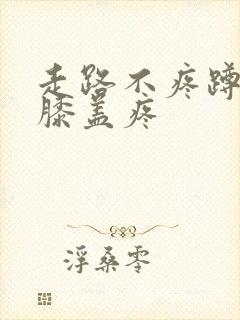 走路不疼蹲
膝盖疼
浮桑零